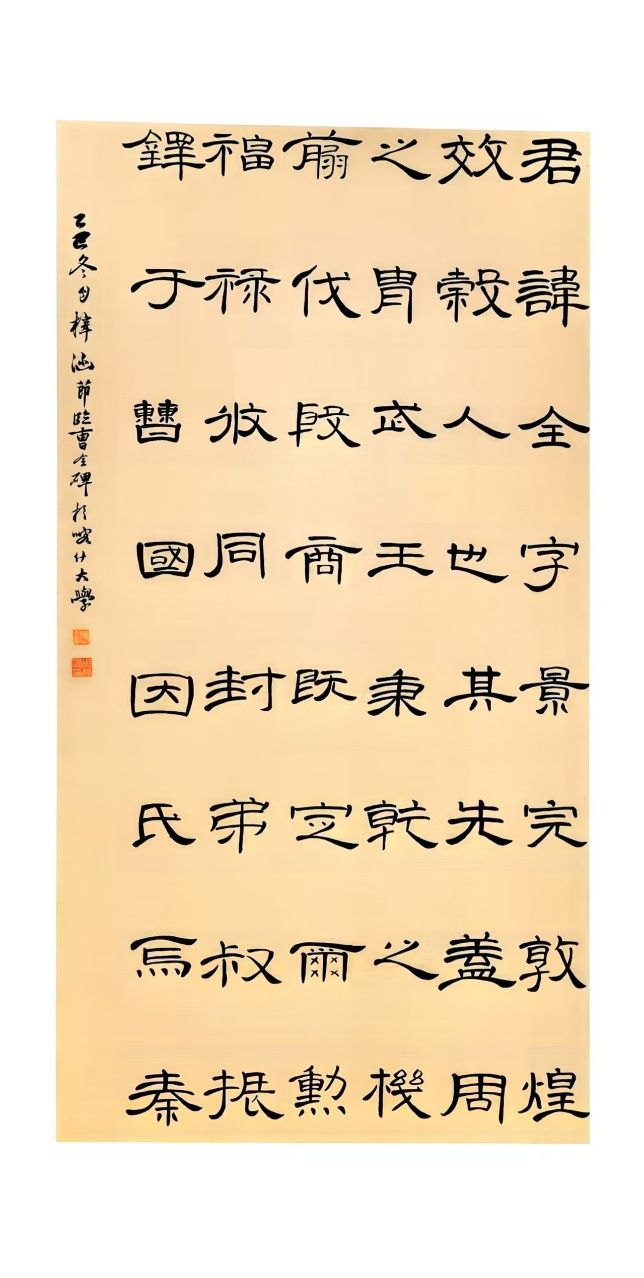 君諱全字景完敦煌
效穀人也其先蓋周
之胄武王秉乾之機
翦伐殷商既定爾勳
福禄攸同封弟叔振
鐸于曹國因氏焉秦
乙巳冬月梓涵節臨曹全碑於喀什大學